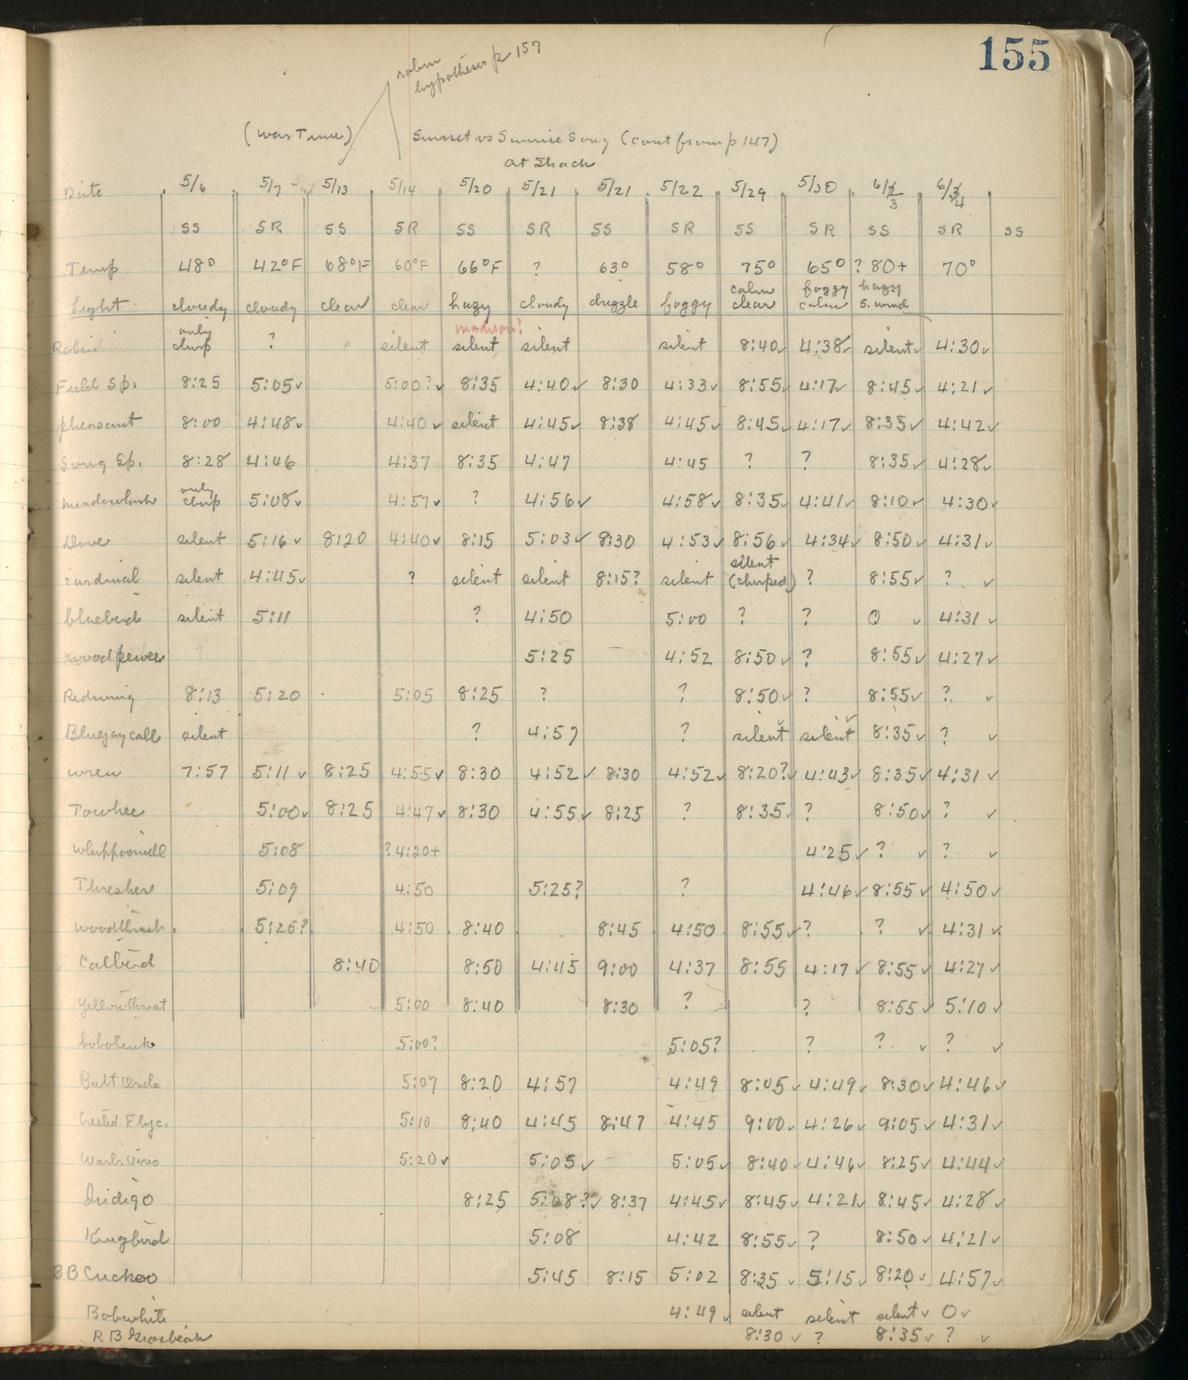 155
robin
hypothesis p 157
(War Time) Sunset vs Sunrise Song (cont from p 147)
at Shack
Date 5/6 5/7 5/13 5/14 5/20 5/21 5/21 5/22 5/29 5/30 6/3 6/4
SS SR SS SR SS SR SS SR SS SR SS SR SS
Temp 48° 42°F 68°F 60°F 66°F ? 63° 58° 75° 65° ? 80+ 70°
Light cloudy cloudy clear clear hazy cloudy drizzle foggy calm clear foggy calm hazy S. wind
madison?
Robin only chirp ? silent silent silent silent 8:40✓ 4:38✓ silent✓ 4:30✓
Field Sp. 8:25 5:05✓ 5:00?✓ 8:35 4:40✓ 8:30 4:33✓ 8:55✓ 4:17✓ 8:45✓ 4:21✓
pheasant 8:00 4:48✓ 4:40✓ silent 4:45✓ 8:38 4:45✓ 8:45✓ 4:17✓ 8:35✓ 4:42✓
Song Sp. 8:28 4:46 4:37 8:35 4:47 4:45 ? ? 8:35✓ 4:28✓
meadowlark only chirp 5:08✓ 4:57✓ ? 4:56✓ 4:58✓ 8:35✓ 4:41✓ 8:10✓ 4:30✓
Dove silent 5:16✓ 8:20 4:40✓ 8:15 5:03✓ 8:30 4:53✓ 8:56✓ 4:34✓ 8:50✓ 4:31✓
cardinal silent 4:45✓ ? silent silent 8:15? silent silent (chirped) ? 8:55✓ ? ✓
bluebird silent 5:11 ? 4:50 5:00 ? ? 0 ✓ 4:31✓
wood pewee ? 5:25 — 4:52 8:50✓ ? 8:55✓ 4:27✓
Redwing 8:13 5:20 5:05 8:25 ? ? 8:50✓ ? 8:55✓ ? ✓
Bluejay call silent ? 4:57 ? silent✓ silent✓ 8:35✓ ? ✓
wren 7:57 5:11✓ 8:25 4:55✓ 8:30 4:52✓ 8:30 4:52✓ 8:20?✓ 4:43✓ 8:35✓ 4:31✓
Towhee 5:00✓ 8:25 4:47✓ 8:30 4:55✓ 8:25 ? 8:35✓ ? 8:50✓ ? ✓
whippoorwill 5:08 ?4:20+ 4:25✓ ? ✓ ? ✓
Thrasher 5:09 4:50 5:25? ? 4:46✓ 8:55✓ 4:50✓
woodthrush 5:25? 4:50 8:40 8:45 4:50 8:55✓ ? ? ✓ 4:31✓
Catbird 8:40 8:50 4:45 9:00 4:37 8:55 4:17✓ 8:55✓ 4:27✓
Yellowthroat 5:00 8:40 8:30 ? ? 8:55✓ 5:10✓
bobolink 5:00? 5:05? ? ? ✓ ? ✓
Balt Oriole 5:07 8:20 4:57 4:49 8:05✓ 4:49✓ 8:30✓ 4:46✓
Crested Flyc. 5:10 8:40 4:45 8:47 4:45 9:00✓ 4:26✓ 9:05✓ 4:31✓
Warb. Vireo 5:20✓ 5:05✓ 5:05✓ 8:40✓ 4:46✓ 8:25✓ 4:44✓
Indigo 8:25 5:08?✓ 8:37 4:45✓ 8:45✓ 4:21✓ 8:45✓ 4:28✓
Kingbird 5:08 4:42 8:55✓ ? 8:50✓ 4:21✓
BB Cuckoo 5:45 8:15 5:02 8:35✓ 5:15✓ 8:20✓ 4:57✓
Bobwhite 4:49✓ silent silent silent✓ 0✓
R B Grosbeak 8:30✓ ? 8:35✓ ? ✓